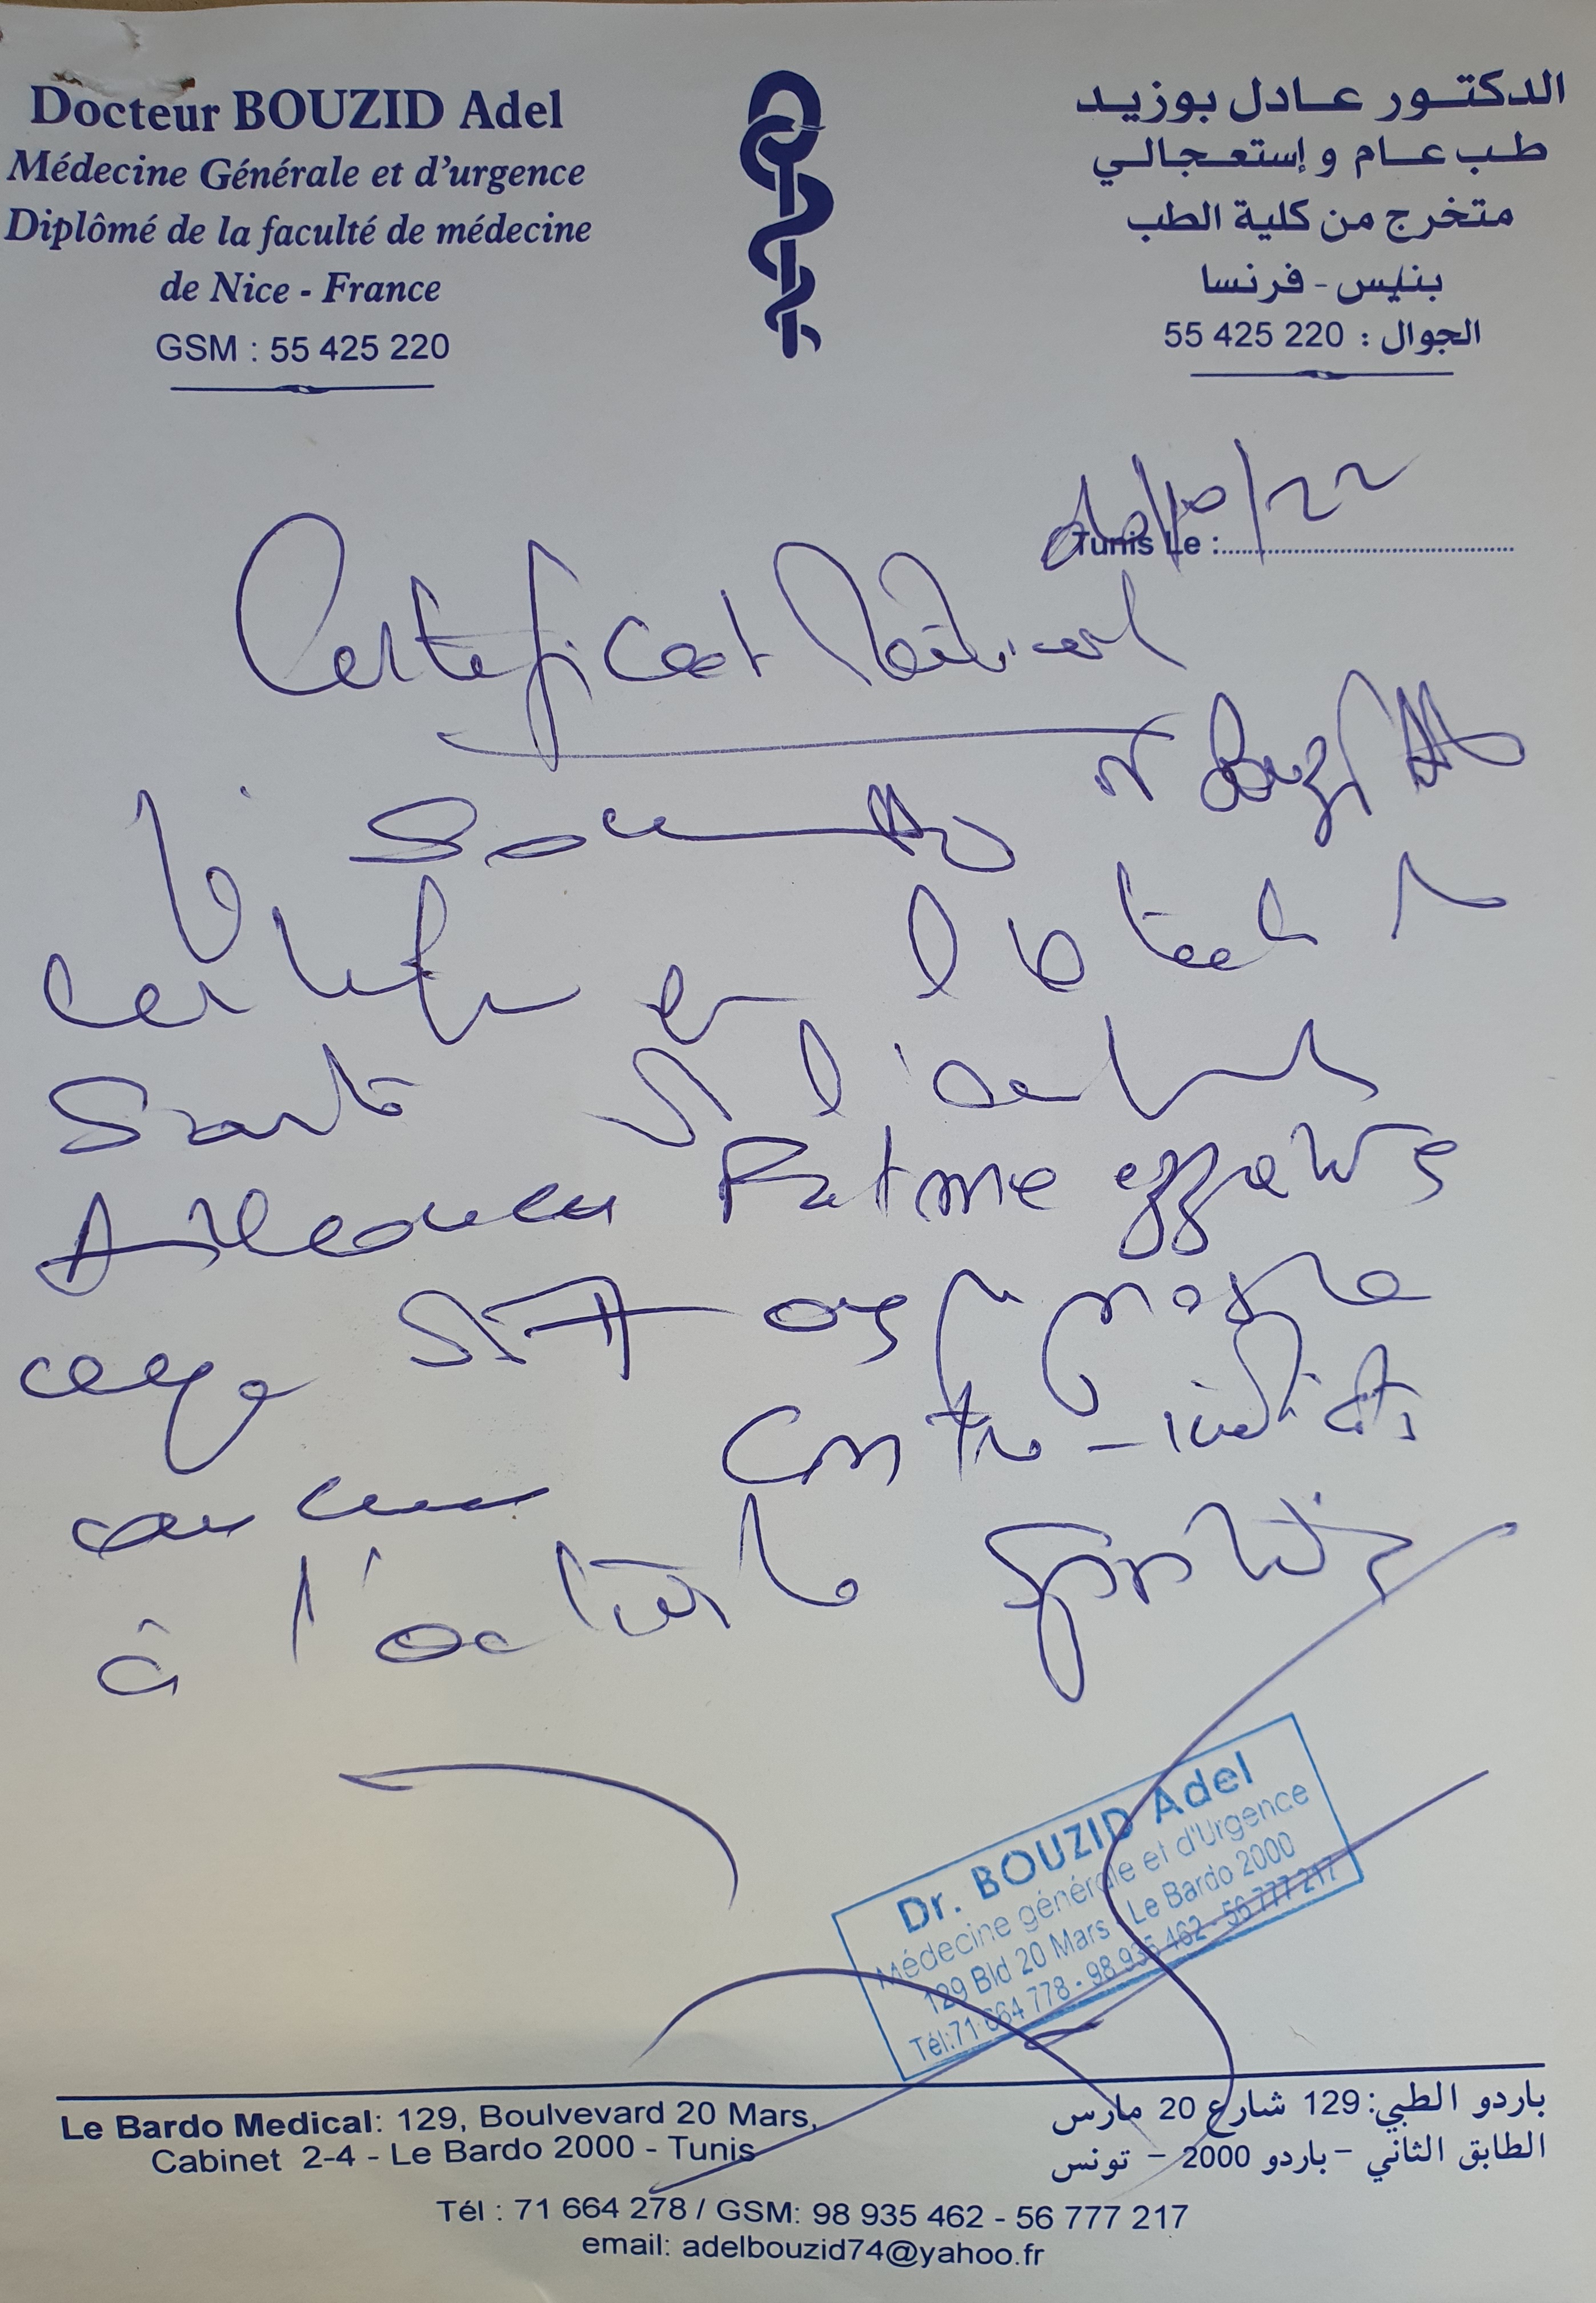 Docteur BOUZID Adel
Médecine Générale et d'urgence
Diplômé de la faculté de médecine
de Nice - France
GSM : 55 425 220
الدكتور عادل بوزيد
طب عام و إستعجالي
متخرج من كلية الطب
بنيس - فرنسا
الجوال : 220 425 55
Tunis Le : /10/22
Certificat Médical
Je soussigné Dr Bouzid Adel
certifie que l'état de
santé de l'enfant
Fatma ezzahra
aucune contre-indication
à l'activité sportive
Dr. BOUZID Adel
Médecine générale et d'Urgence
129 Bld 20 Mars - Le Bardo 2000
Tél:71 664 778 - 98 935 462 - 56 777 217
Le Bardo Medical: 129, Boulvevard 20 Mars,
Cabinet 2-4 - Le Bardo 2000 - Tunis
باردو الطبي: 129 شارع 20 مارس
الطابق الثاني - باردو 2000 - تونس
Tél : 71 664 278 / GSM: 98 935 462 - 56 777 217
email: adelbouzid74@yahoo.fr